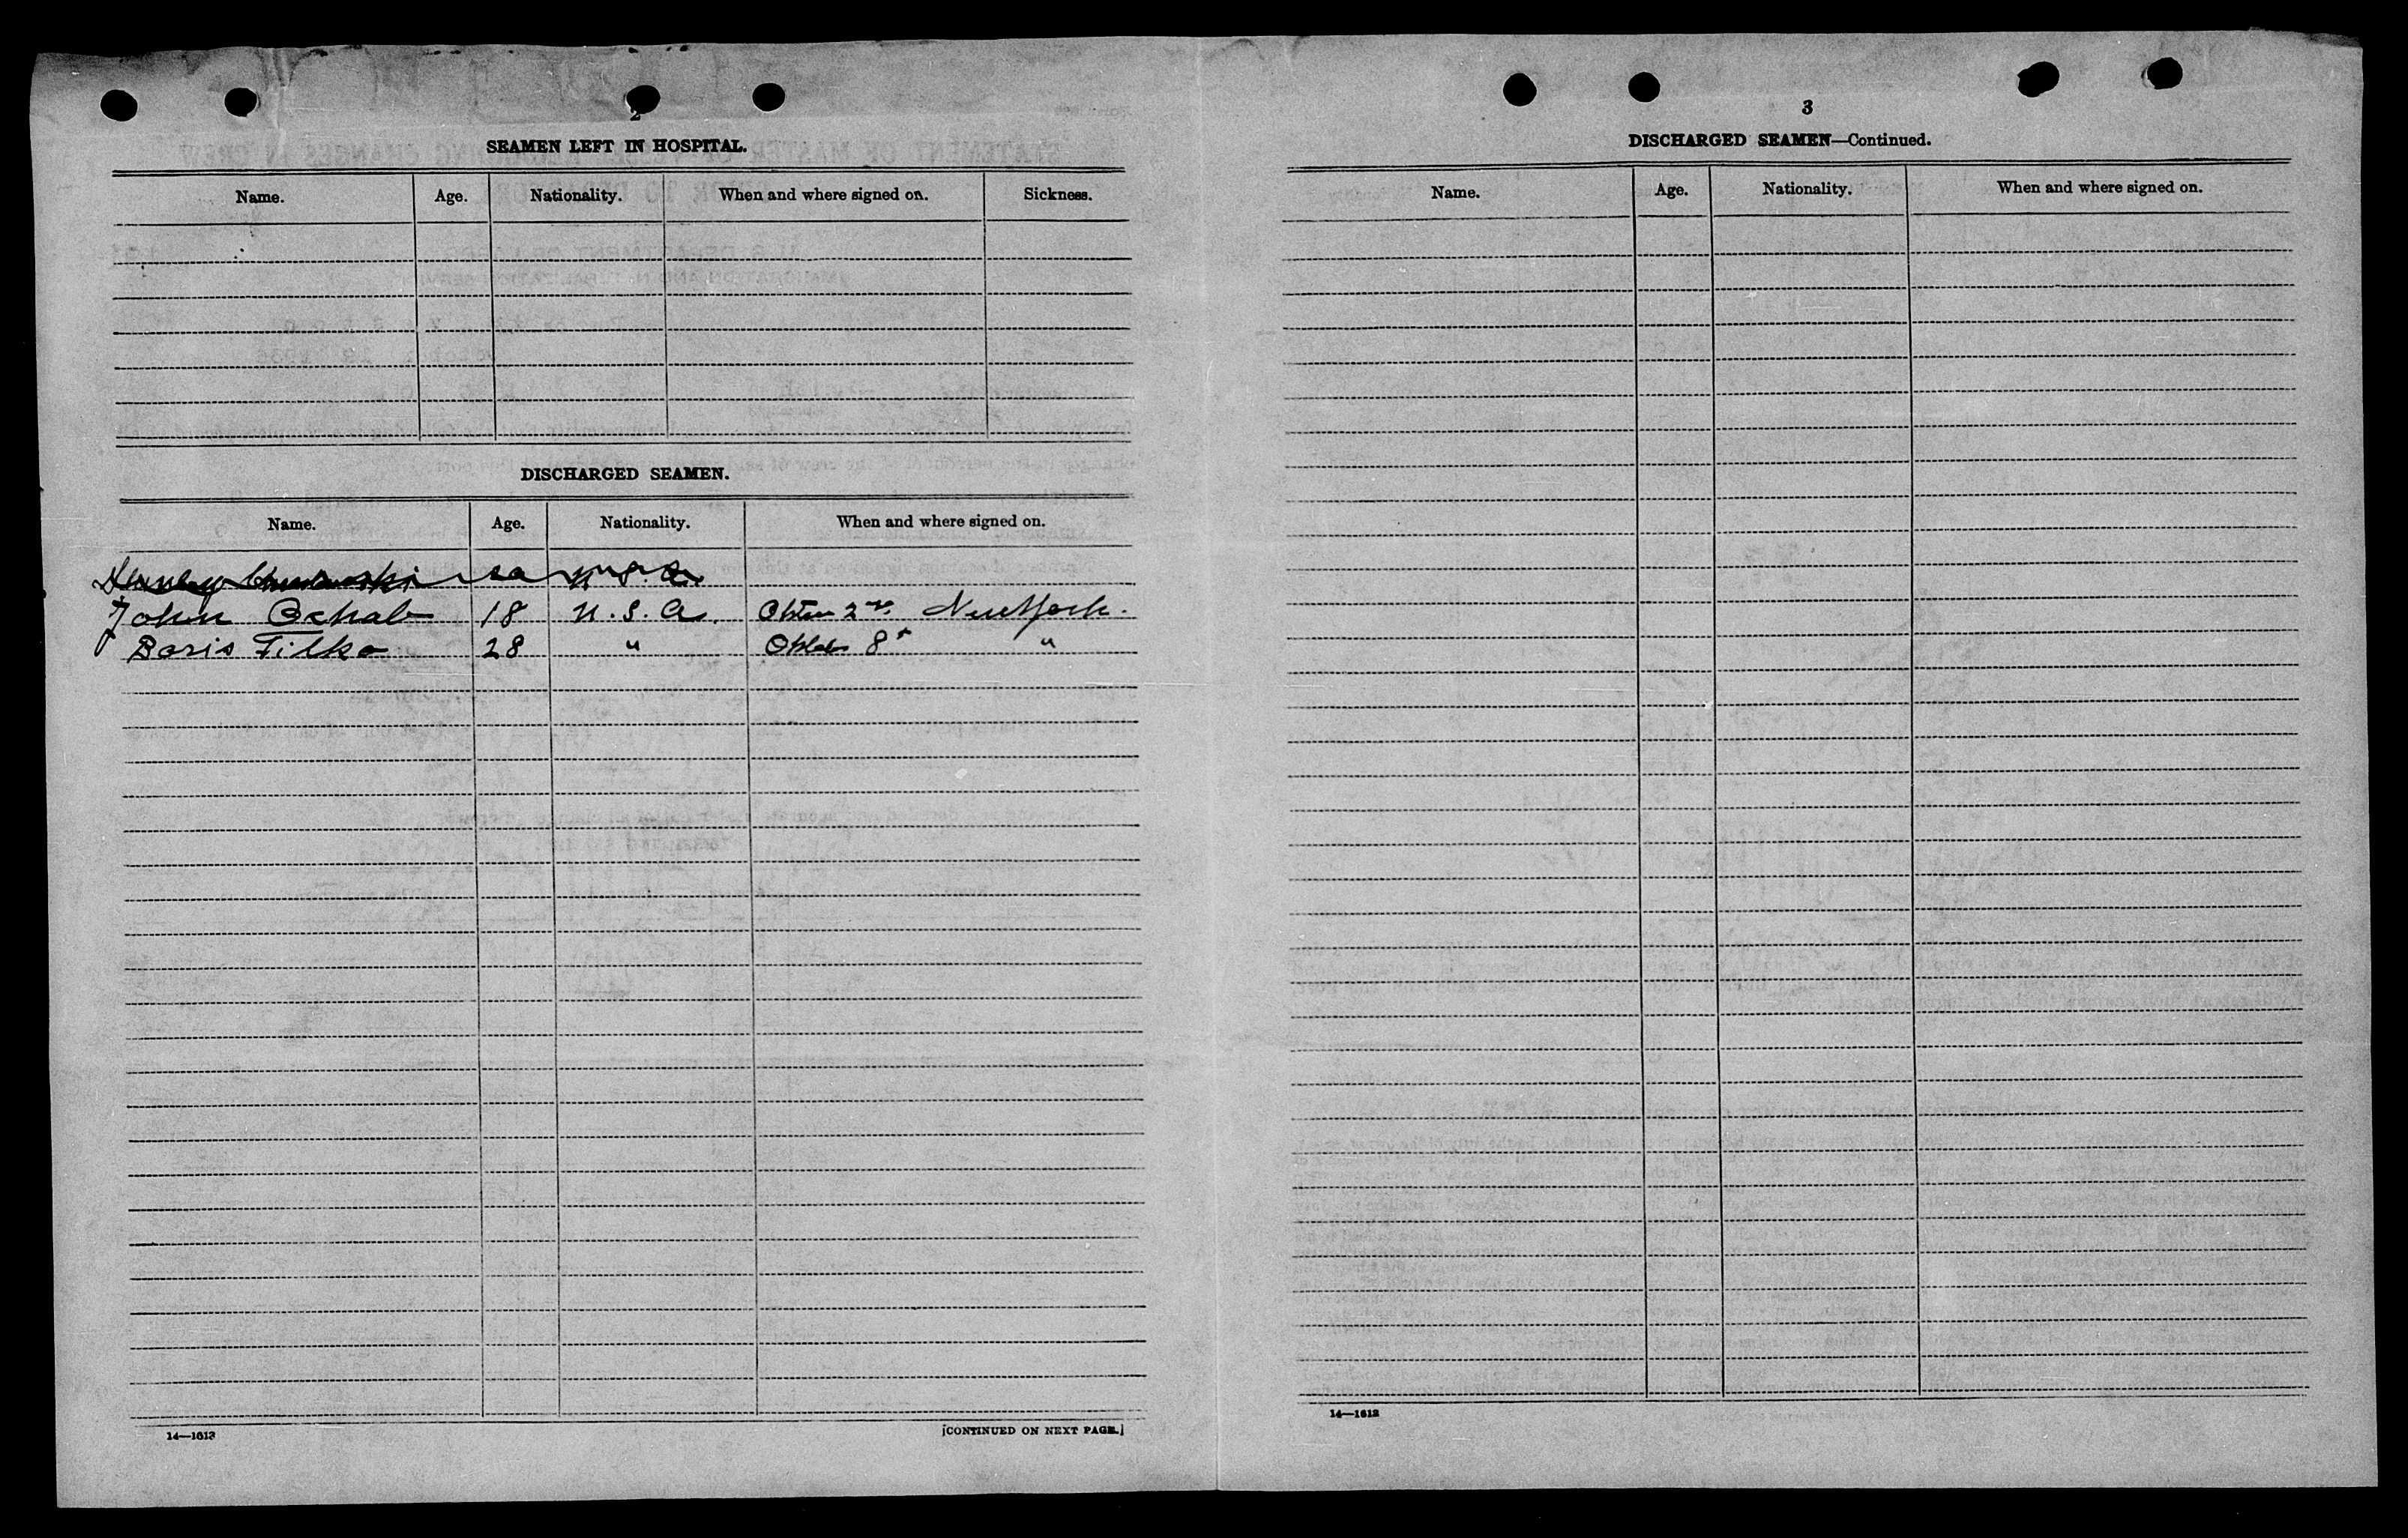 2
SEAMEN LEFT IN HOSPITAL.
Name. Age. Nationality. When and where signed on. Sickness.
DISCHARGED SEAMEN.
Name. Age. Nationality. When and where signed on.
Stanley
John Ochab 18 U.S.A. 2nd New York.
Boris Filko 28 " October 8th "
14—1613
[CONTINUED ON NEXT PAGE.]
3
DISCHARGED SEAMEN—Continued.
Name. Age. Nationality. When and where signed on.
14—1613